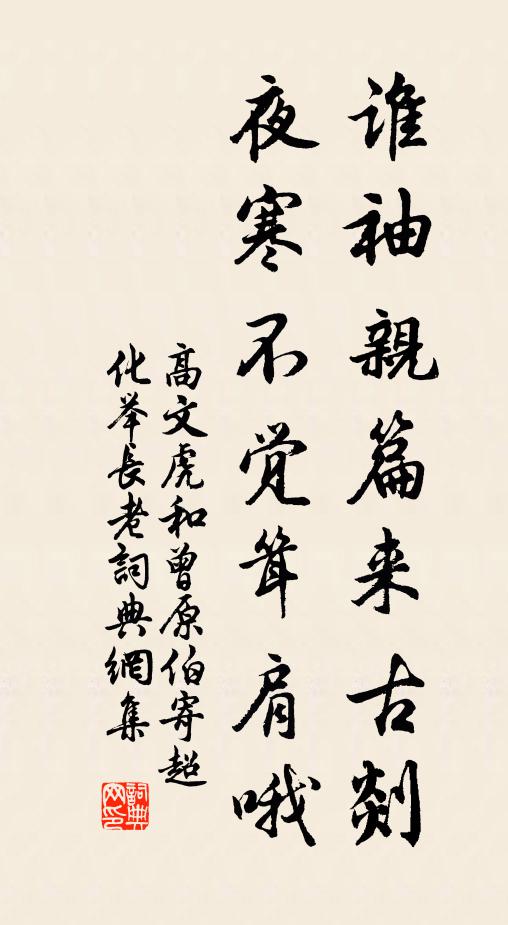 谁袖親篇来古剡
夜寒不觉耸肩哦
高文虎和曾原伯寄超
化举長老詞典網集
詞典网印